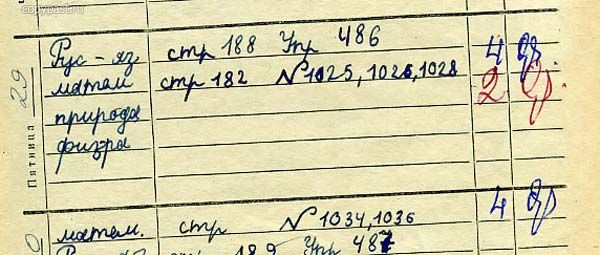 copypast.ru
Рус - яз стр 188 Упр 486 4
матем стр 182 №1025, 1026, 1028 2
природа
физра
Пятница 29
матем. стр №1034, 1036 4
стр 189 Упр 487